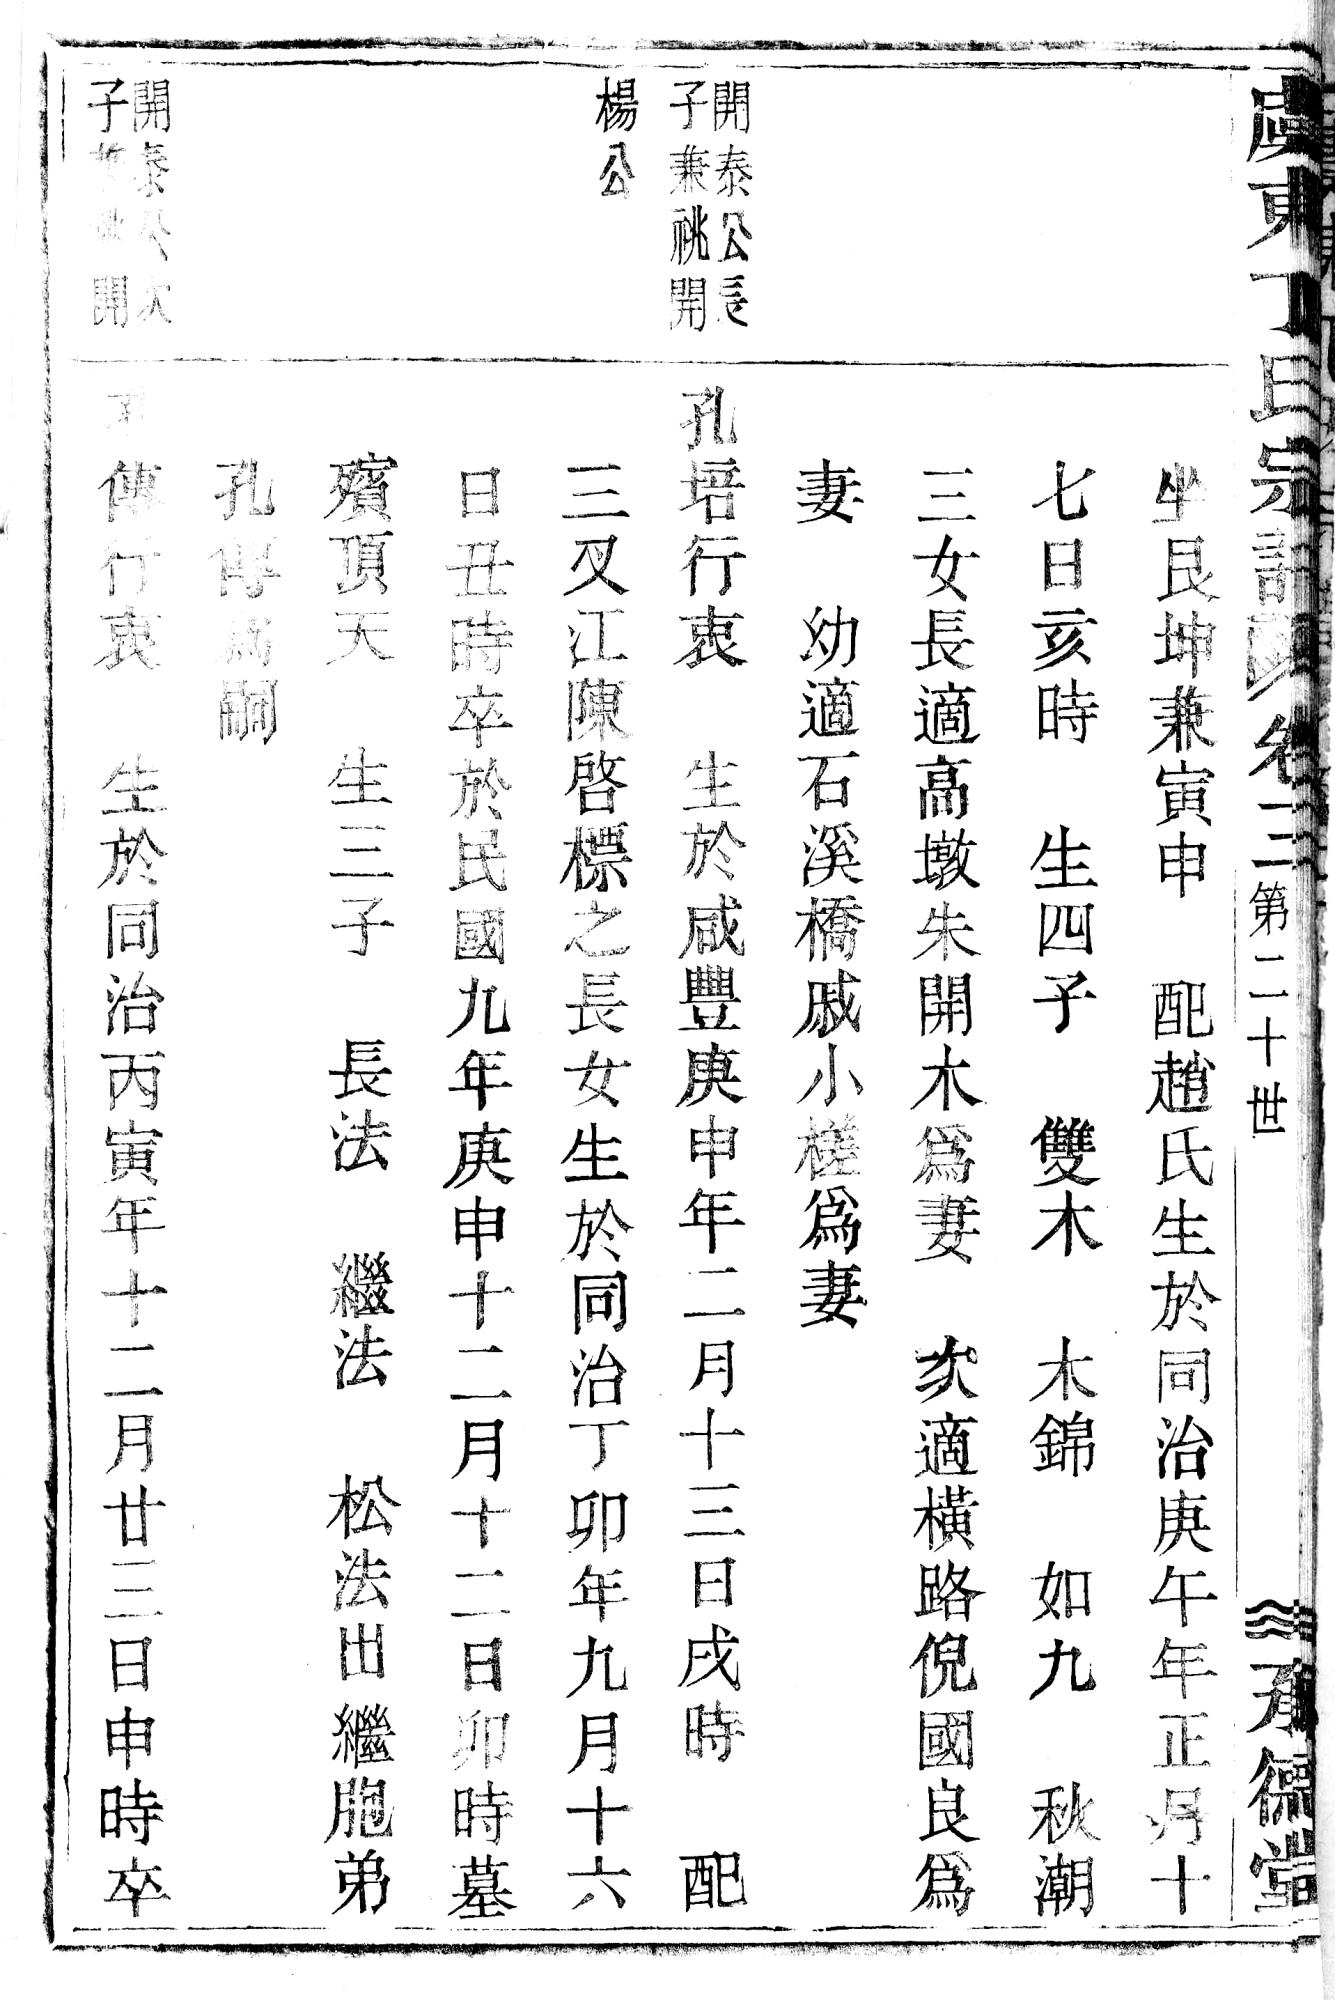 虞東丁氏宗譜 卷三 第二十世 承德堂
坐艮坤兼寅申 配趙氏生於同治庚午年正月十
七日亥時 生四子 雙木 木錦 如九 秋潮
三女長適高墩朱開木爲妻 次適橫路倪國良爲
妻 幼適石溪橋戚小槎爲妻
開泰公長
子兼祧開
楊公
孔培行衷 生於咸豐庚申年二月十三日戌時 配
三叉江陳啓標之長女生於同治丁卯年九月十六
日丑時卒於民國九年庚申十二月十二日卯時墓
殯頂天 生三子 長法 繼法 松法出繼胞弟
孔傳爲嗣
開泰公次
子 開
傳行衷 生於同治丙寅年十二月廿三日申時卒